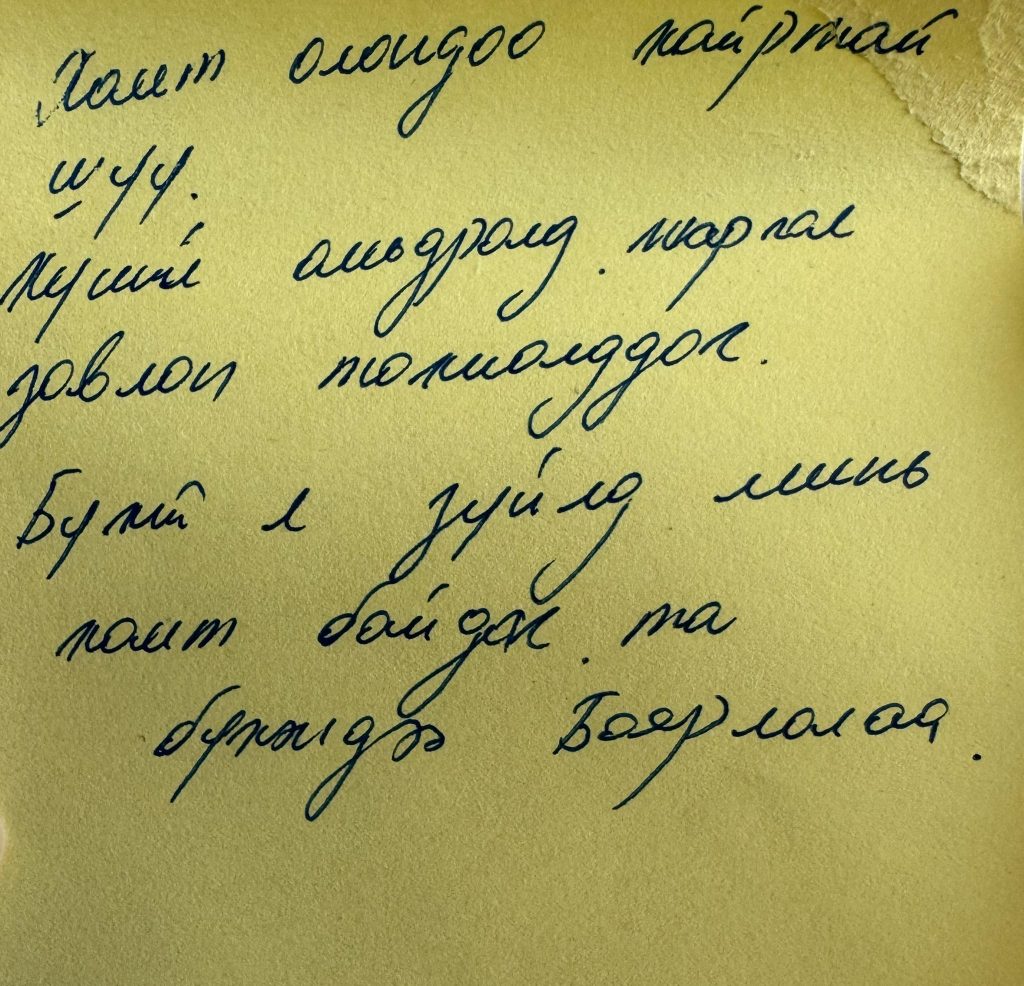 Хамт олондоо хайртай
шүү.
Хүний амьдралд жаргал
зовлон тохиолддог.
Бүхий л зүйлд минь
хамт байдаг та
бүхэндээ Баярлалаа.